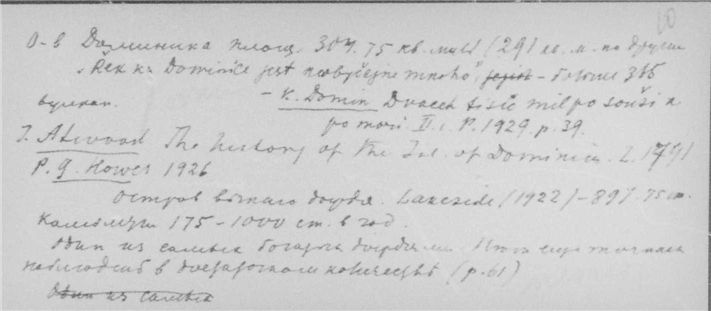 10
О-в Доминика площ. 304.75 кв. миль (291 кв. м. по другим
"Řek k. Dominice jest neobyčejně mnoho", – более 300
вулкан.
– K. Domin Dvacet tisíc mil po souši a
po moři II. P. 1929. p. 39.
T. Atwood The history of the Isl. of Dominica. L. 1791
P. G. Howes 1926
остров вечного дождя. Lakeside (1922) – 897.75 cm.
175 – 1000 cm. в год.
Один из самых богатых дождями.
наблюдений в достаточном количестве (p. 61)
Один из самых